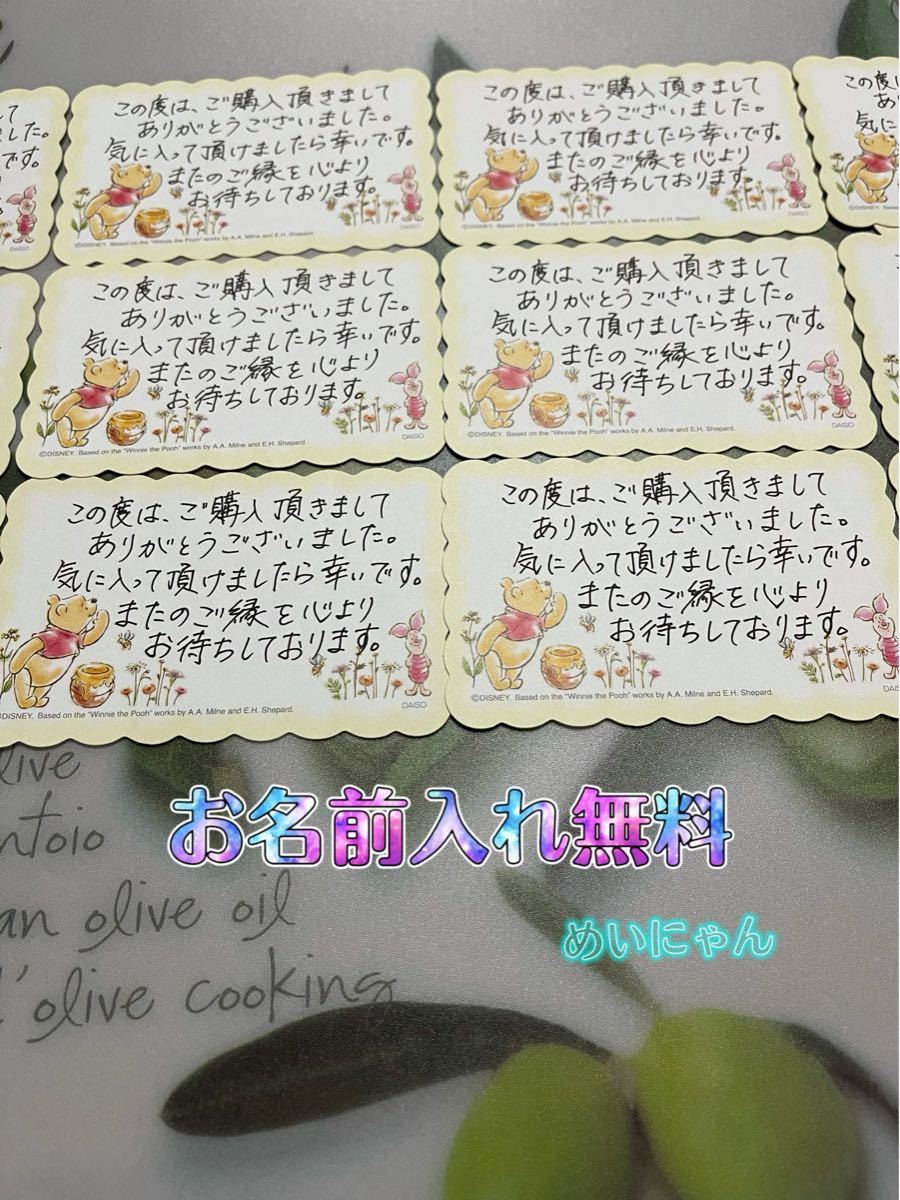 って
ました。
いです。
DAISO
この度は、ご購入頂きまして
ありがとうございました。
気に入って頂けましたら幸いです。
またのご縁を心より
お待ちしております。
©DISNEY. Based on the "Winnie the Pooh" works by A.A. Milne and E.H. Shepard.
DAISO
この度は、ご購入頂きまして
ありがとうございました。
気に入って頂けましたら幸いです。
またのご縁を心より
お待ちしております。
©DISNEY. Based on the "Winnie the Pooh" works by A.A. Milne and E.H. Shepard.
DAISO
この度
あり
気に入
©DISNEY. Based
この度は、ご購入頂きまして
ありがとうございました。
気に入って頂けましたら幸いです。
またのご縁を心より
お待ちしております。
©DISNEY. Based on the "Winnie the Pooh" works by A.A. Milne and E.H. Shepard.
DAISO
この度は、ご購入頂きまして
ありがとうございました。
気に入って頂けましたら幸いです。
またのご縁を心より
お待ちしております。
©DISNEY. Based on the "Winnie the Pooh" works by A.A. Milne and E.H. Shepard.
DAISO
この度は、ご購入頂きまして
ありがとうございました。
気に入って頂けましたら幸いです。
またのご縁を心より
お待ちしております。
DISNEY. Based on the "Winnie the Pooh" works by A.A. Milne and E.H. Shepard.
DAISO
この度は、ご購入頂きまして
ありがとうございました。
気に入って頂けましたら幸いです。
またのご縁を心より
お待ちしております。
©DISNEY. Based on the "Winnie the Pooh" works by A.A. Milne and E.H. Shepard.
DAISO
live
ntoio
an olive oil
l'olive cooking
お名前入れ無料
めいにゃん